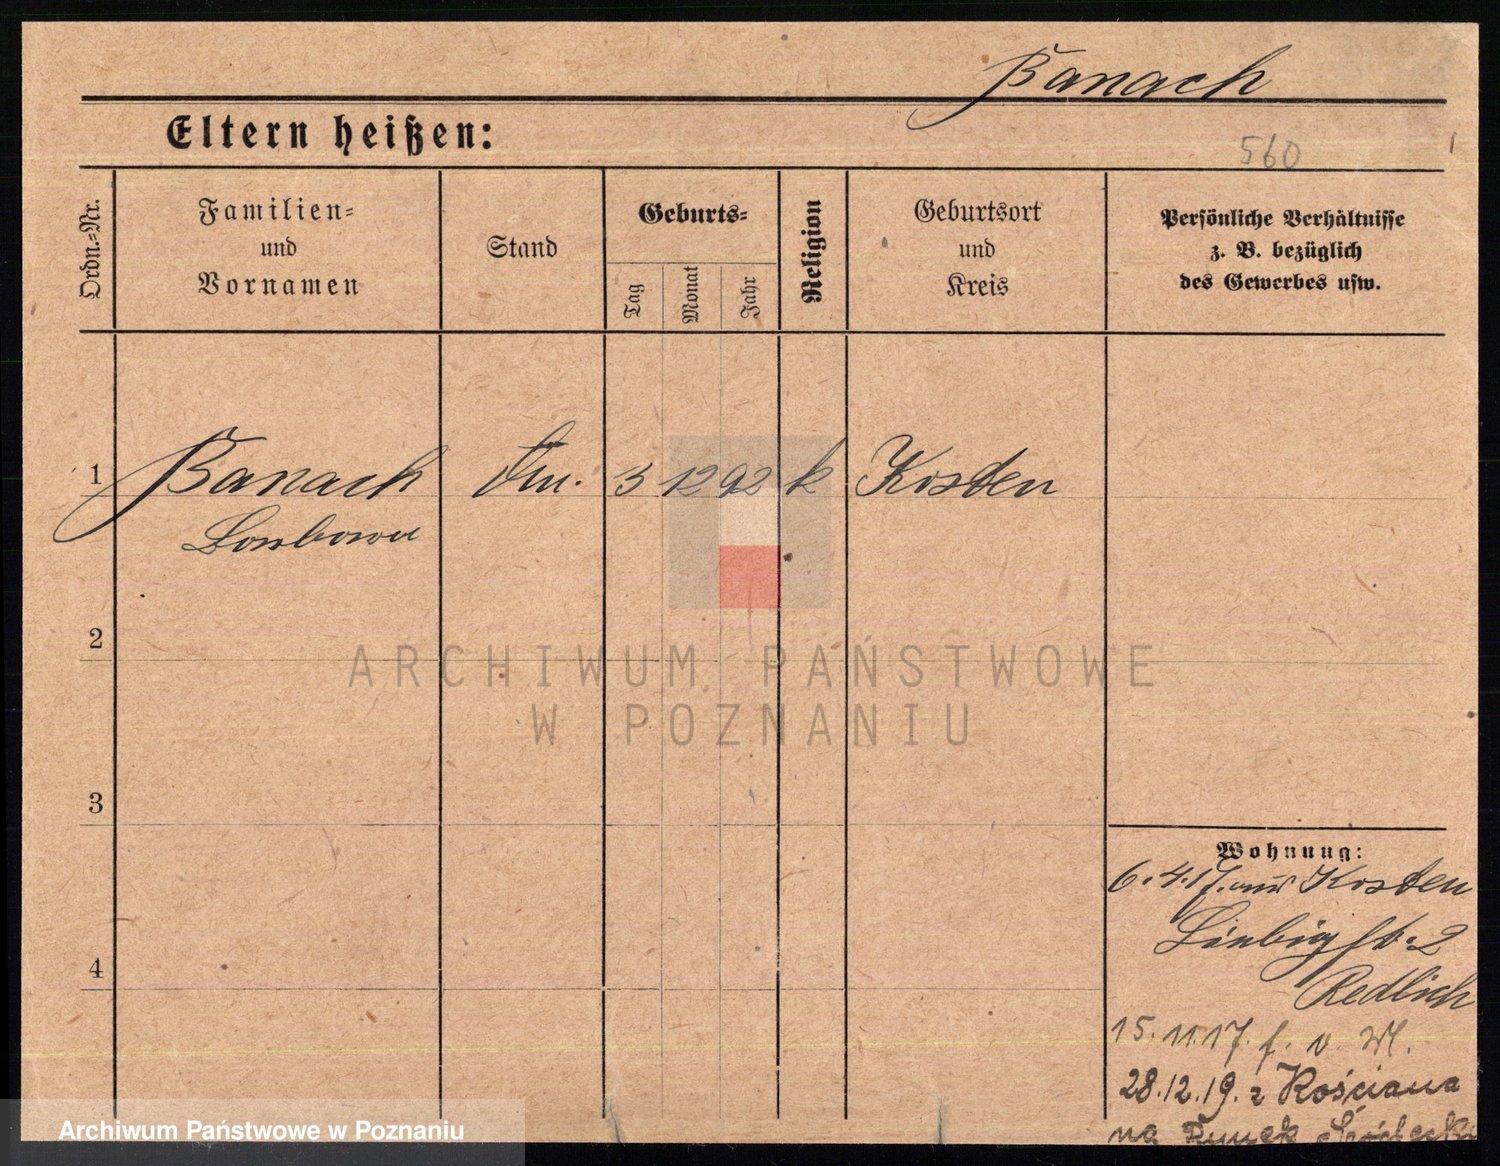 Banach
Eltern heißen:
560
Ordn.=Nr.
Familien=
und
Vornamen
Stand
Geburts=
Tag
Monat
Jahr
Religion
Geburtsort
und
Kreis
Persönliche Verhältnisse
z. B. bezüglich
des Gewerbes usw.
1 Banach 3 12 92 k Kosten
2
3
4
ARCHIWUM PAŃSTWOWE
W POZNANIU
Wohnung:
6.4.17. aus Kosten
Liebigstr. 2
Redlich
15.11.17. f. v. Wl.
28.12.19. z Kościana
na Rynek
Archiwum Państwowe w Poznaniu